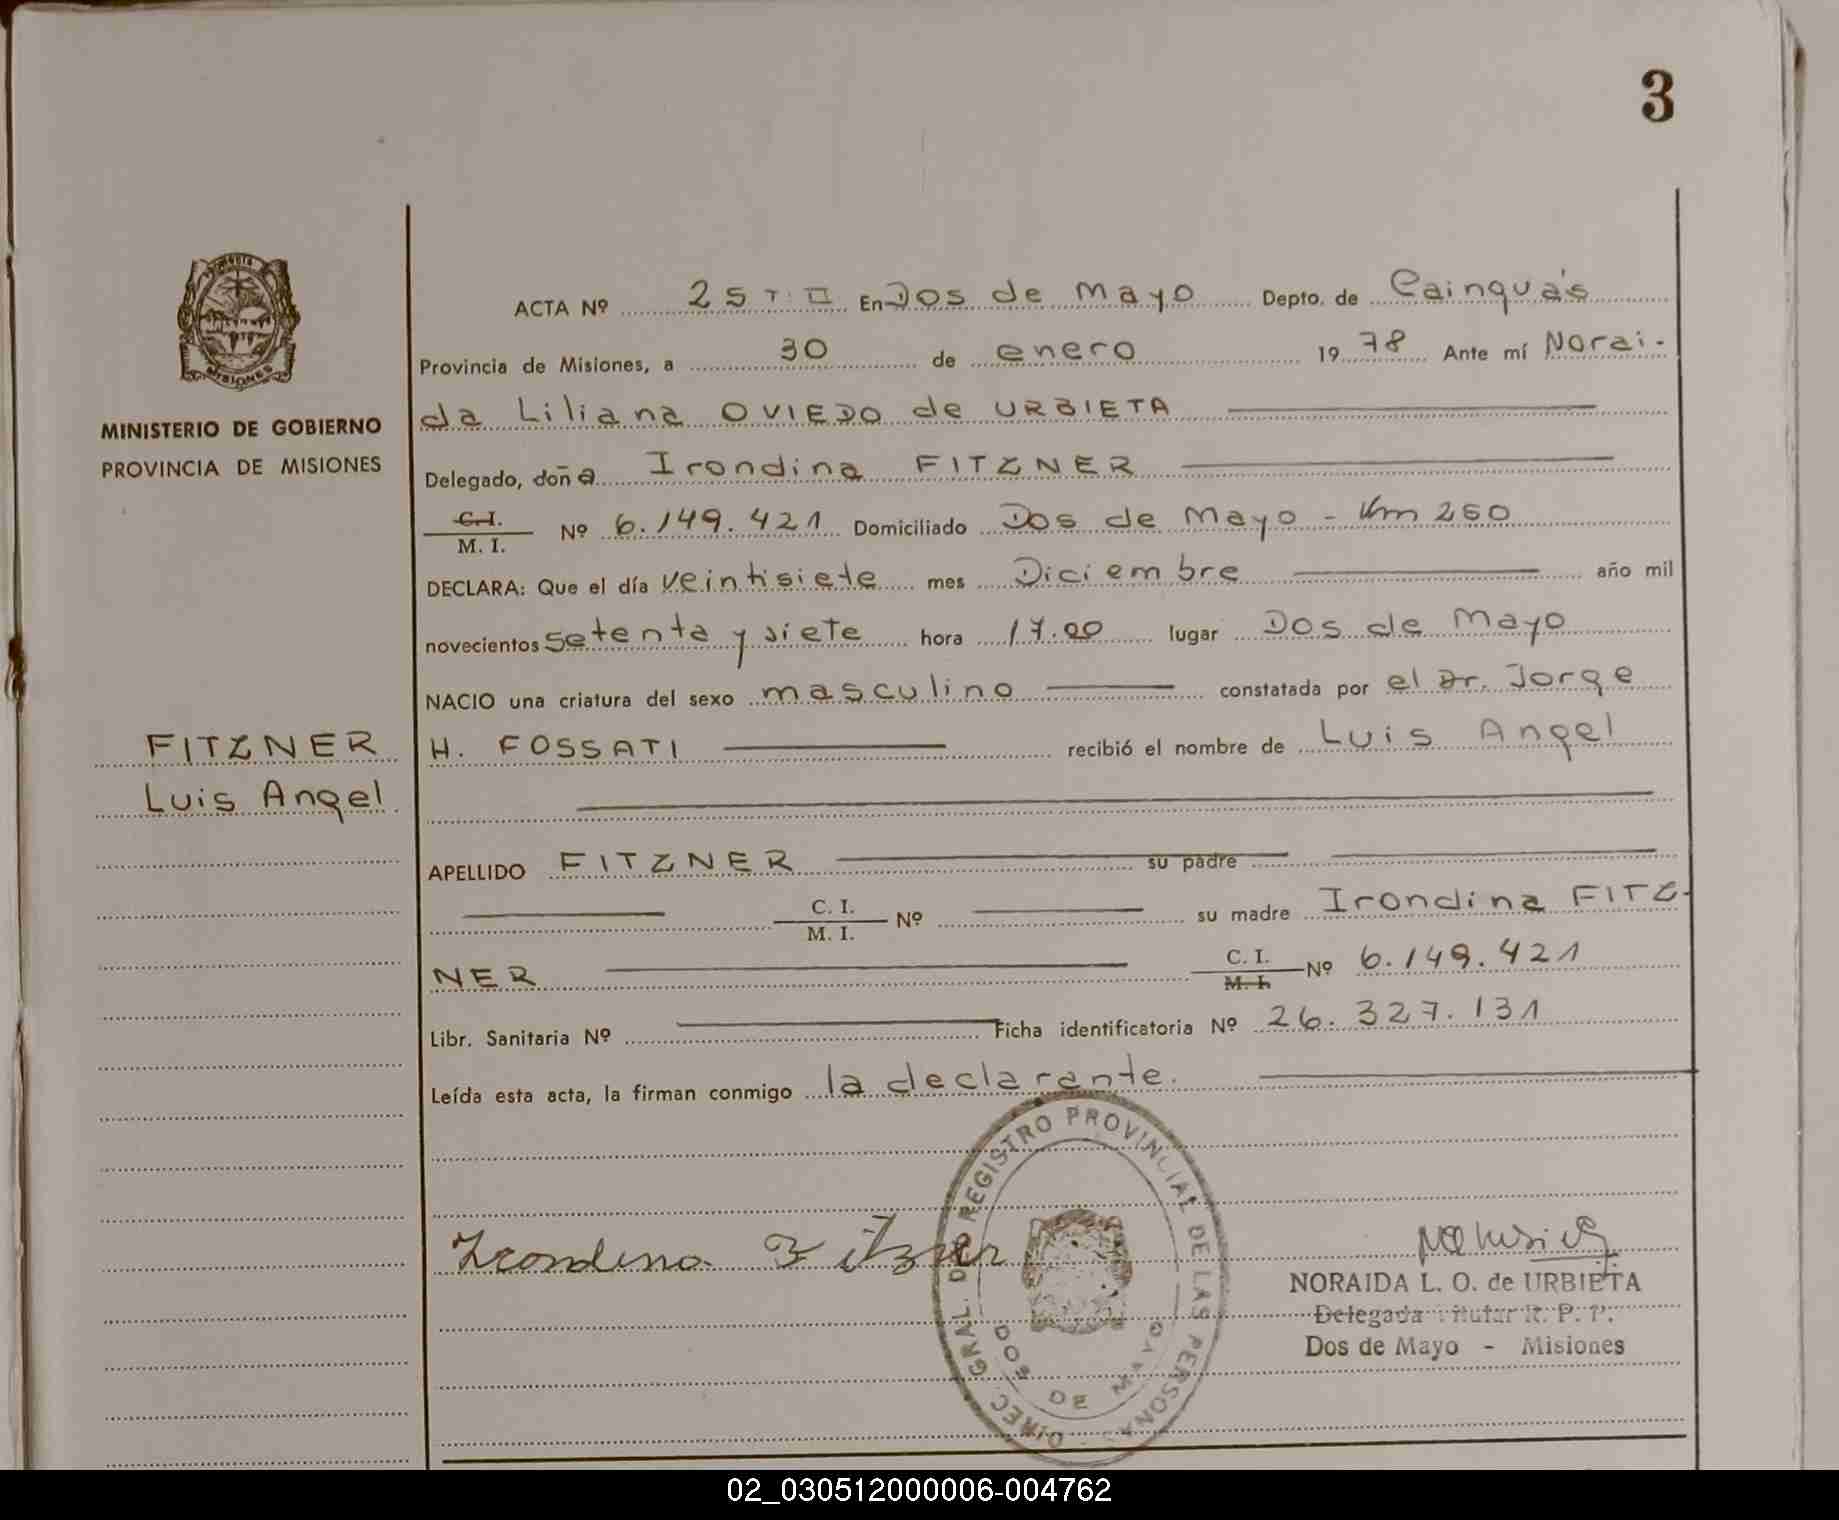 3
MINISTERIO DE GOBIERNO
PROVINCIA DE MISIONES
FITZNER
Luis Angel
ACTA Nº 25 T. II En Dos de Mayo Depto. de Cainguás
Provincia de Misiones, a 30 de enero 1978 Ante mí Norai-
da Liliana OVIEDO de URBIETA
Delegado, doña Irondina FITZNER
C.I. / M. I. Nº 6.149.421 Domiciliado Dos de Mayo - Km 260
DECLARA: Que el día veintisiete mes Diciembre año mil
novecientos setenta y siete hora 17.00 lugar Dos de Mayo
NACIO una criatura del sexo masculino constatada por el Dr. Jorge
H. FOSSATI recibió el nombre de Luis Angel
APELLIDO FITZNER su padre
C. I. / M. I. Nº su madre Irondina FITZ-
NER C. I. / M. I. Nº 6.149.421
Libr. Sanitaria Nº Ficha identificatoria Nº 26.327.131
Leída esta acta, la firman conmigo la declarante.
Irondina Fitzner
DIREC. GRAL. DE REGISTRO PROVINCIAL DE LAS PERSONAS
DOS DE MAYO
NORAIDA L. O. de URBIETA
Delegada Titular R. P. P.
Dos de Mayo - Misiones
02_030512000006-004762